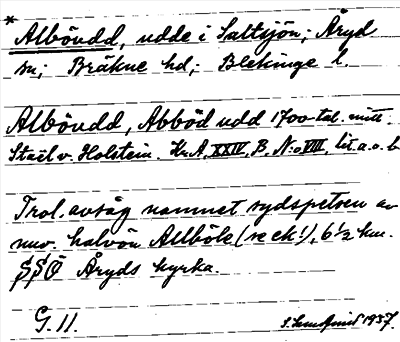 * Alböudd, udde i Saltsjön; Åryd
sn; Bräkne hd; Blekinge l.
Alböudd, Abböd udd 1700-tal. mitt.
Staël v. Holstein. Kr.A, XXIV, B, N:o VIII, lit. a. o. b
Trol. avsåg namnet sydspetsen av
nuv. halvön Allböle (se ek!), 6 1/2 km.
SSÖ Åryds kyrka.
G. 11. 1937.